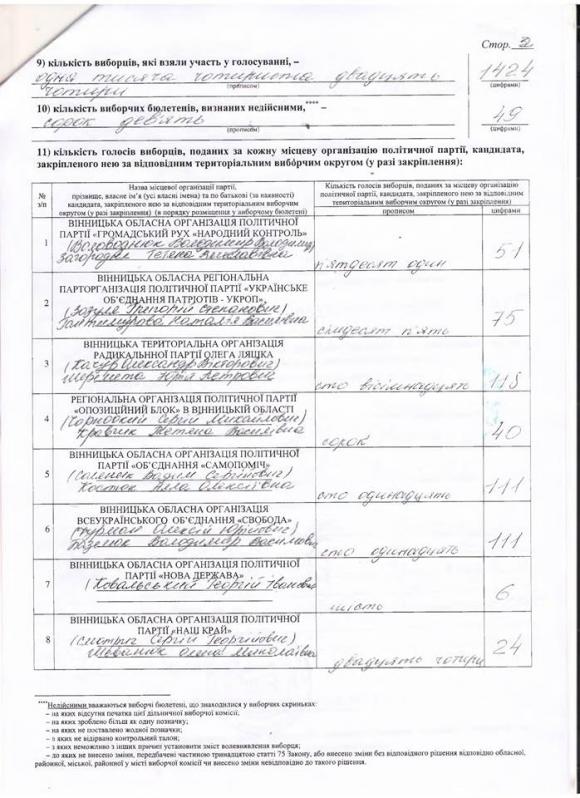 Стор. 2
9) кількість виборців, які взяли участь у голосуванні, –
одна тисяча чотириста двадцять 1424
чотири (прописом) (цифрами)
10) кількість виборчих бюлетенів, визнаних недійсними,**** –
сорок дев'ять 49
(прописом) (цифрами)
11) кількість голосів виборців, поданих за кожну місцеву організацію політичної партії, кандидата,
закріпленого нею за відповідним територіальним виборчим округом (у разі закріплення):
№ з/п
Назва місцевої організації партії,
прізвище, власне ім'я (усі власні імена) та по батькові (за наявності)
кандидата, закріпленого нею за відповідним територіальним виборчим
округом (у разі закріплення) (в порядку розміщення у виборчому бюлетені)
Кількість голосів виборців, поданих за місцеву організацію
політичної партії, кандидата, закріпленого нею за відповідним
територіальним виборчим округом (у разі закріплення)
прописом цифрами
1
ВІННИЦЬКА ОБЛАСНА ОРГАНІЗАЦІЯ ПОЛІТИЧНОЇ
ПАРТІЇ «ГРОМАДСЬКИЙ РУХ «НАРОДНИЙ КОНТРОЛЬ»
Володимир
Тетяна
п'ятдесят один 51
2
ВІННИЦЬКА ОБЛАСНА РЕГІОНАЛЬНА
ПАРТОРГАНІЗАЦІЯ ПОЛІТИЧНОЇ ПАРТІЇ «УКРАЇНСЬКЕ
ОБ'ЄДНАННЯ ПАТРІОТІВ - УКРОП»
(Зазуля Григорій Степанович)
Наталія Василівна
сімдесят п'ять 75
3
ВІННИЦЬКА ТЕРИТОРІАЛЬНА ОРГАНІЗАЦІЯ
РАДИКАЛЬННОЇ ПАРТІЇ ОЛЕГА ЛЯШКА
Олександр Вікторович)
Шеремета Юрій Петрович
сто вісімнадцять 118
4
РЕГІОНАЛЬНА ОРГАНІЗАЦІЯ ПОЛІТИЧНОЇ ПАРТІЇ
«ОПОЗИЦІЙНИЙ БЛОК» В ВІННИЦЬКІЙ ОБЛАСТІ
Сергій Михайлович)
Кравчик Тетяна Василівна
сорок 40
5
ВІННИЦЬКА ОБЛАСНА ОРГАНІЗАЦІЯ ПОЛІТИЧНОЇ
ПАРТІЇ «ОБ'ЄДНАННЯ «САМОПОМІЧ»
Вадим Сергійович)
Костюк Алла Олексіївна
сто одинадцять 111
6
ВІННИЦЬКА ОБЛАСНА ОРГАНІЗАЦІЯ
ВСЕУКРАЇНСЬКОГО ОБ'ЄДНАННЯ «СВОБОДА»
Олексій Юрійович)
Володимир
сто одинадцять 111
7
ВІННИЦЬКА ОБЛАСНА ОРГАНІЗАЦІЯ ПОЛІТИЧНОЇ
ПАРТІЇ «НОВА ДЕРЖАВА»
(Ковальський Георгій Іванович
шість 6
8
ВІННИЦЬКА ОБЛАСНА ОРГАНІЗАЦІЯ ПОЛІТИЧНОЇ
ПАРТІЇ «НАШ КРАЙ»
Сергій Георгійович)
Олена Миколаївна
двадцять чотири 24
****Недійсними вважаються виборчі бюлетені, що знаходилися у виборчих скриньках:
– на яких відсутня печатка цієї дільничної виборчої комісії;
– на яких зроблено більш як одну позначку;
– на яких не поставлено жодної позначки;
– з яких не відірвано контрольний талон;
– з яких неможливо з інших причин установити зміст волевиявлення виборця;
– до яких не внесено зміни, передбачені частиною тринадцятою статті 75 Закону, або внесено зміни без відповідного рішення відповідно обласної,
районної, міської, районної у місті виборчої комісії чи внесено зміни невідповідно до такого рішення.